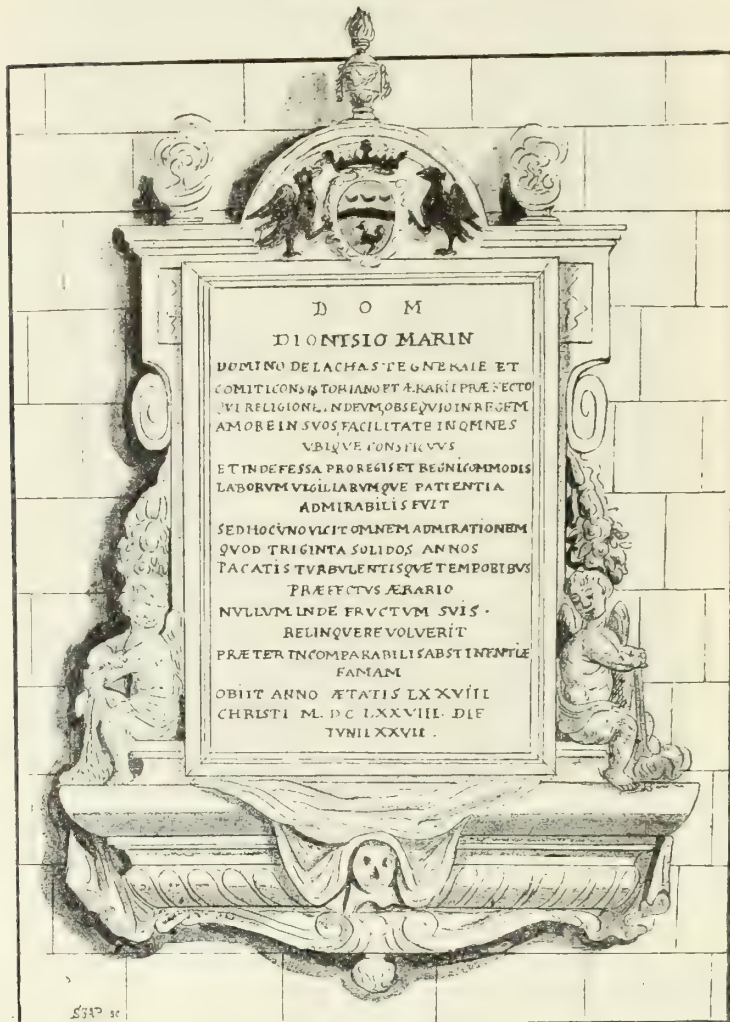 D O M
DIONISIO MARIN
DOMINO DE LACHASTEGNERAIE ET
COMITI CONSISTORIANO ET ÆRARII PRÆFECTO
QVI RELIGIONE IN DEVM, OBSEQVIO IN REGEM
AMORE IN SVOS, FACILITATE IN OMNES
VBIQVE CONSPICVVS
ET INDEFESSA PRO REGIS ET REGNI COMMODIS
LABORVM VIGILIARVMQVE PATIENTIA
ADMIRABILIS FVIT
SED HOC VNO VICIT OMNEM ADMIRATIONEM
QVOD TRIGINTA SOLIDOS ANNOS
PACATIS TVRBVLENTISQVE TEMPORIBVS
PRÆFECTVS ÆRARIO
NVLLVM INDE FRVCTVM SVIS.
RELINQVERE VOLVERIT
PRÆTER INCOMPARABILIS ABSTINENTIÆ
FAMAM
OBIIT ANNO ÆTATIS LXXVIII
CHRISTI M. DC LXXVIII. DIE
IVNII XXVII.